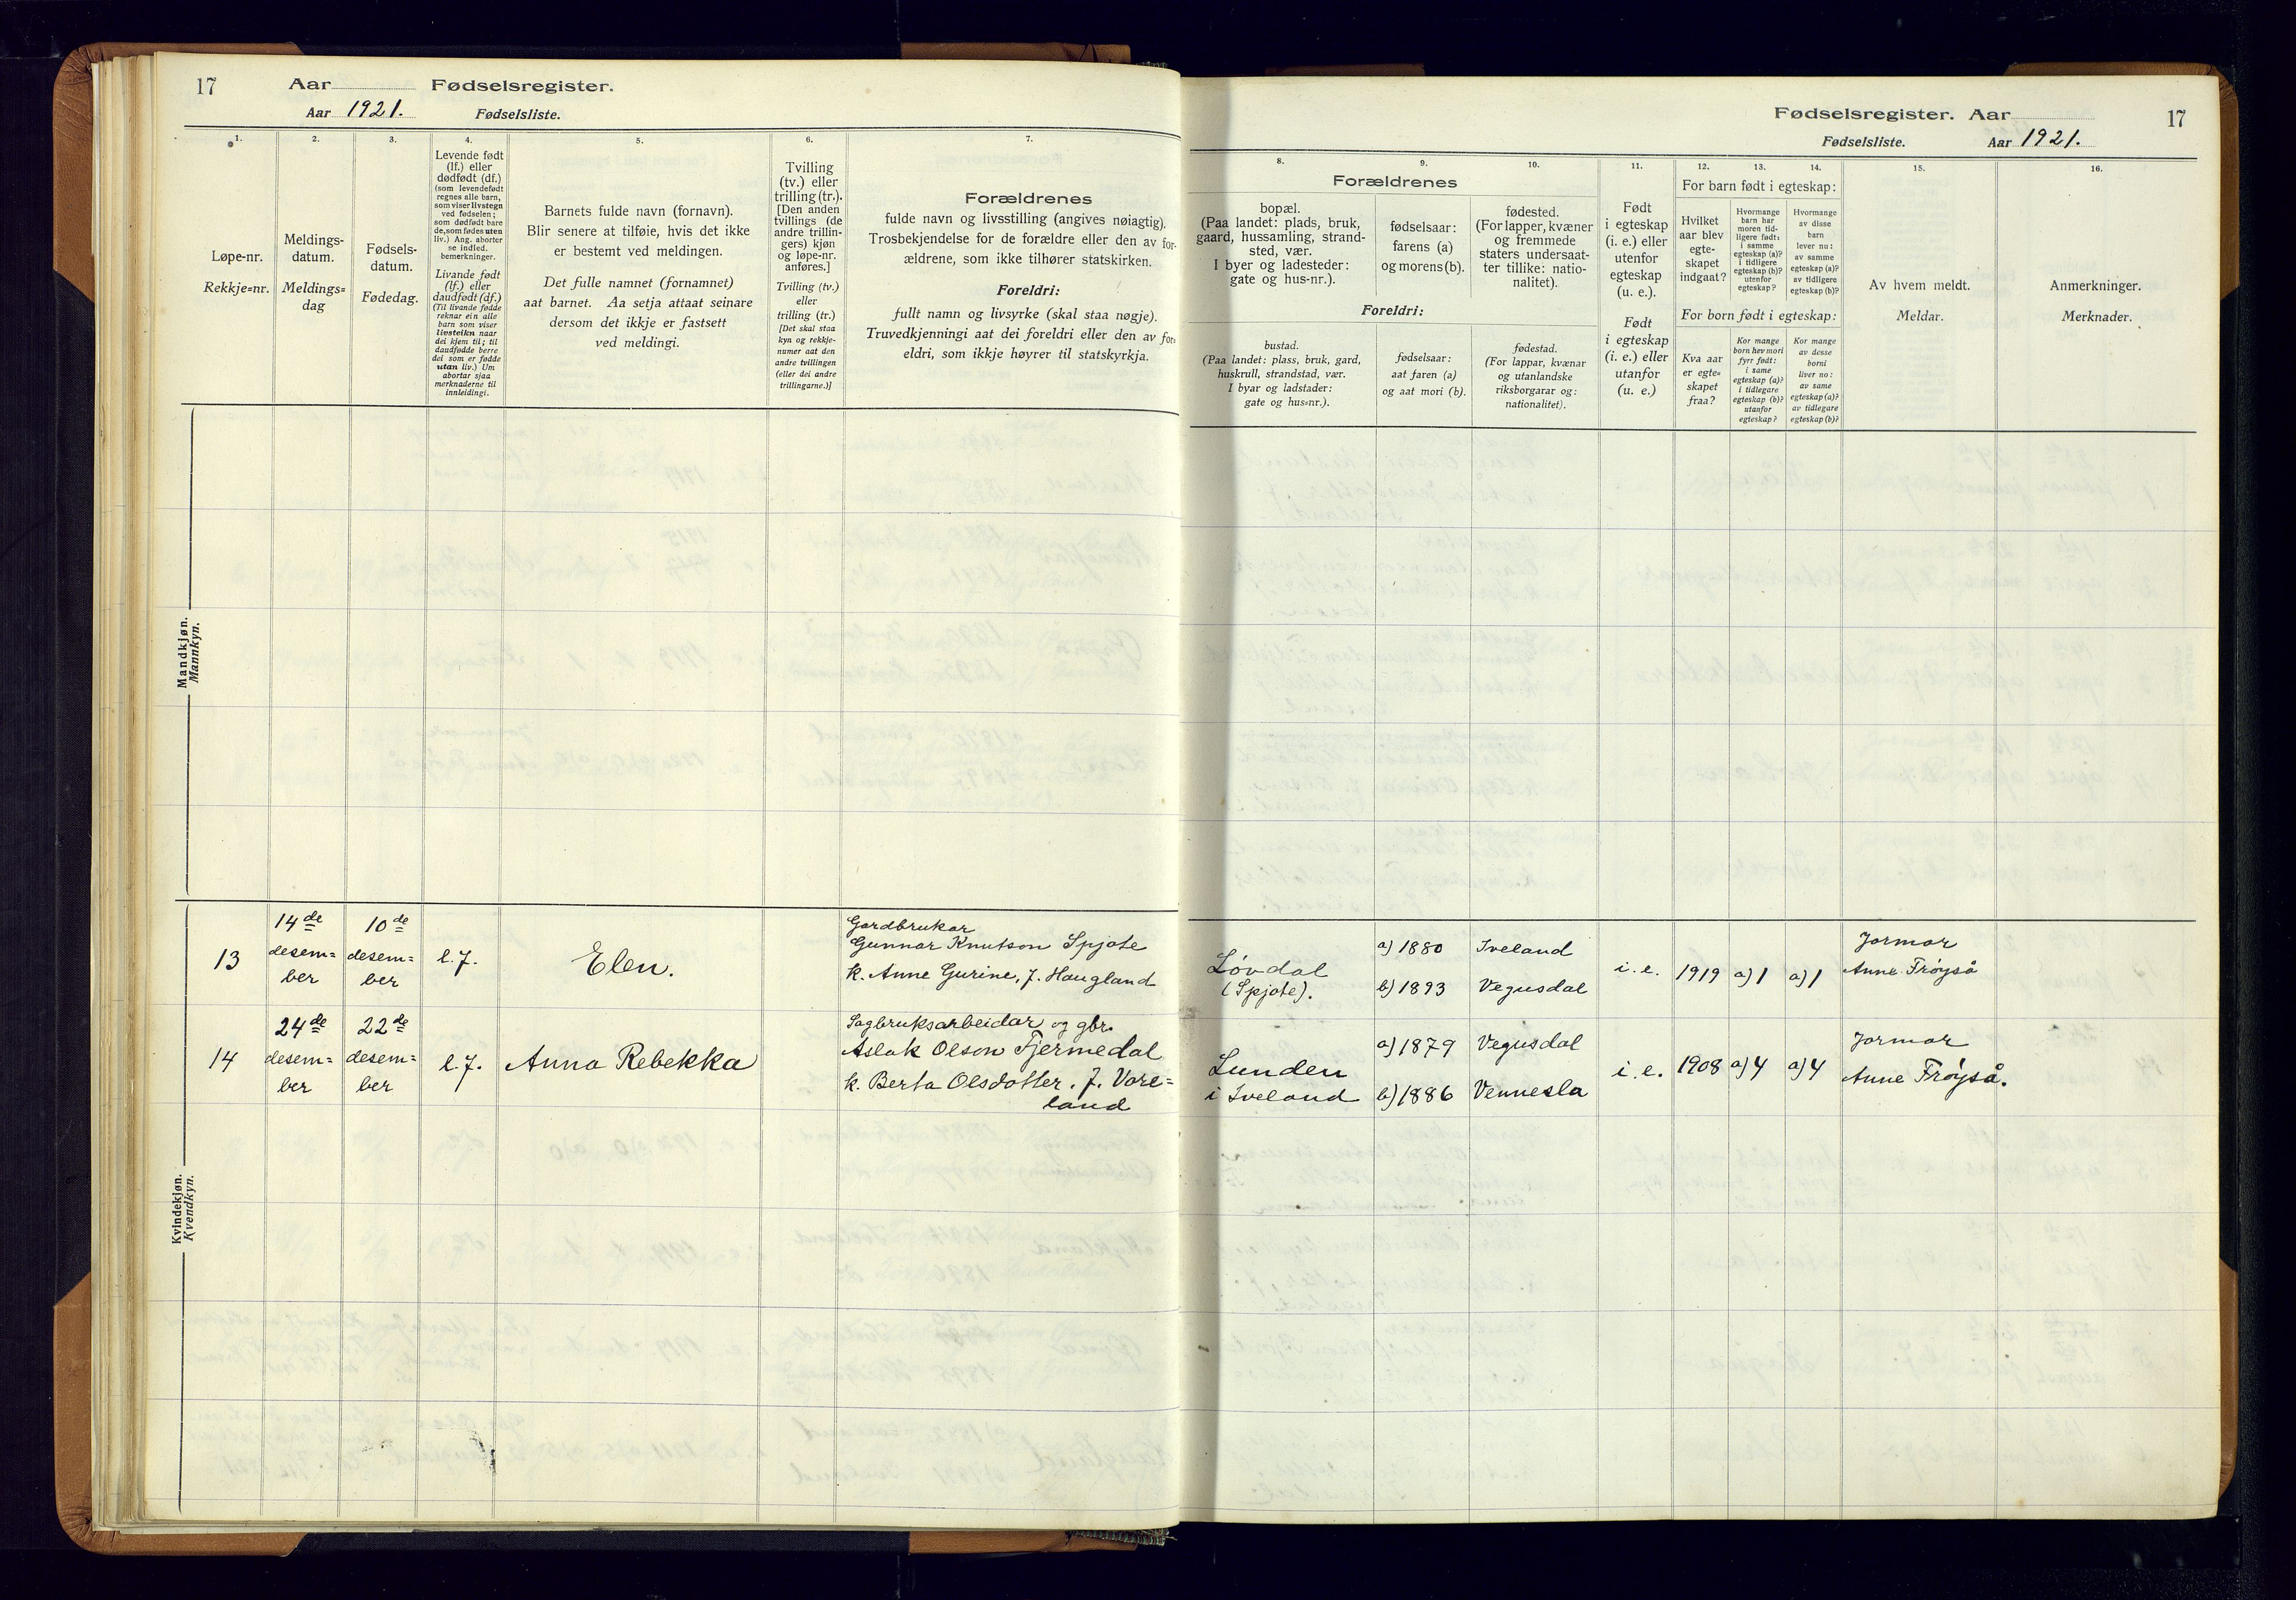 17
Aar
Fødselsregister.
Aar 1921.
Fødselsliste.
1.
2.
3.
4.
5.
6.
7.
Løpe-nr.
Rekkje=nr.
Meldings-
datum.
Meldings=
dag
Fødsels-
datum.
Fødedag.
Levende født
(lf.) eller
dødfødt (df.)
(som levendefødt
regnes alle barn,
som viser livstegn
ved fødselen;
som dødfødt bare
de, som fødes uten
liv.) Ang. aborter
se indled.
bemerkninger.
Livande født
(lf.) eller
daudfødt (df.)
(Til livande fødde
reknar ein alle
barn som viser
livsteikn naar
dei kjem til; til
daudfødde berre
dei som er fødde
utan liv.) Um
abortar sjaa
merknaderne til
innleidingi.
Barnets fulde navn (fornavn).
Blir senere at tilføie, hvis det ikke
er bestemt ved meldingen.
Det fulle namnet (fornamnet)
aat barnet. Aa setja attaat seinare
dersom det ikkje er fastsett
ved meldingi.
Tvilling
(tv.) eller
trilling (tr.).
[Den anden
tvillings (de
andre trillin-
gers) kjøn
og løpe-nr.
anføres.]
Tvilling (tv.)
eller
trilling (tr.)
[Det skal staa
kyn og rekkje-
numer aat den
andre tvillingen
(eller dei andre
trillingarne.)]
Forældrenes
fulde navn og livsstilling (angives nøiagtig).
Trosbekjendelse for de forældre eller den av for-
ældrene, som ikke tilhører statskirken.
Foreldri:
fullt namn og livsyrke (skal staa nøgje).
Truvedkjenningi aat dei foreldri eller den av for-
eldri, som ikkje høyrer til statskyrkja.
Mandkjøn.
Mannkyn.
Kvindekjøn.
Kvendkyn.
13
14de
desem=
ber
10de
desem=
ber
l.f.
Elen.
Gardbrukar
Gunnar Knutson Spjote
k. Anne Gurine, f. Haugland
14
24de
desem=
ber
22de
desem=
ber
l.f.
Anna Rebekka
Sagbruksarbeidar og gbr.
Aslak Olson Tjermedal
k. Berta Olsdotter, f. Vare=
land
Fødselsregister. Aar
17
Fødselsliste.
Aar 1921.
8.
9.
10.
11.
12.
13.
14.
15.
16.
Forældrenes
bopæl.
(Paa landet: plads, bruk,
gaard, hussamling, strand-
sted, vær.
I byer og ladesteder:
gate og hus-nr.).
fødselsaar:
farens (a)
og morens (b).
fødested.
(For lapper, kvæner
og fremmede
staters undersaat-
ter tillike: natio-
nalitet).
Foreldri:
bustad.
(Paa landet: plass, bruk, gard,
huskrull, strandstad, vær.
I byar og ladstader:
gate og hus=nr.).
fødselsaar:
aat faren (a)
og aat mori (b).
fødestad.
(For lappar, kvænar
og utanlandske
riksborgarar og:
nationalitet).
Født
i egteskap
(i. e.) eller
utenfor
egteskap
(u. e.).
Født
i egteskap
(i. e.) eller
utanfor
(u. e.)
For barn født i egteskap:
Hvilket
aar blev
egte-
skapet
indgaat?
Hvormange
barn har
moren tid-
ligere født:
i samme
egteskap (a)?
i tidligere
egteskap (b)?
utenfor
egteskap?
Hvormange
av disse
barn
lever nu:
av samme
egteskap (a)?
av tidligere
egteskap (b)?
For born født i egteskap:
Kva aar
er egte=
skapet
fraa?
Kor mange
born hev mori
fyrr født:
i same
egteskap (a)?
i tidlegare
egteskap (b)?
utanfor
egteskap?
Kor mange
av desse
borni
liver no:
av same
egteskap (a)?
av tidlegare
egteskap (b)?
Av hvem meldt.
Meldar.
Anmerkninger.
Merknader.
Løvdal
(Spjote).
a) 1880
b) 1893
Iveland
Vegusdal
i. e.
1919
a) 1
a) 1
Jormor
Anne Frøyså
Lunden
i Iveland
a) 1879
b) 1886
Vegusdal
Vennesla
i. e.
1908
a) 4
a) 4
Jormor
Anne Frøyså.